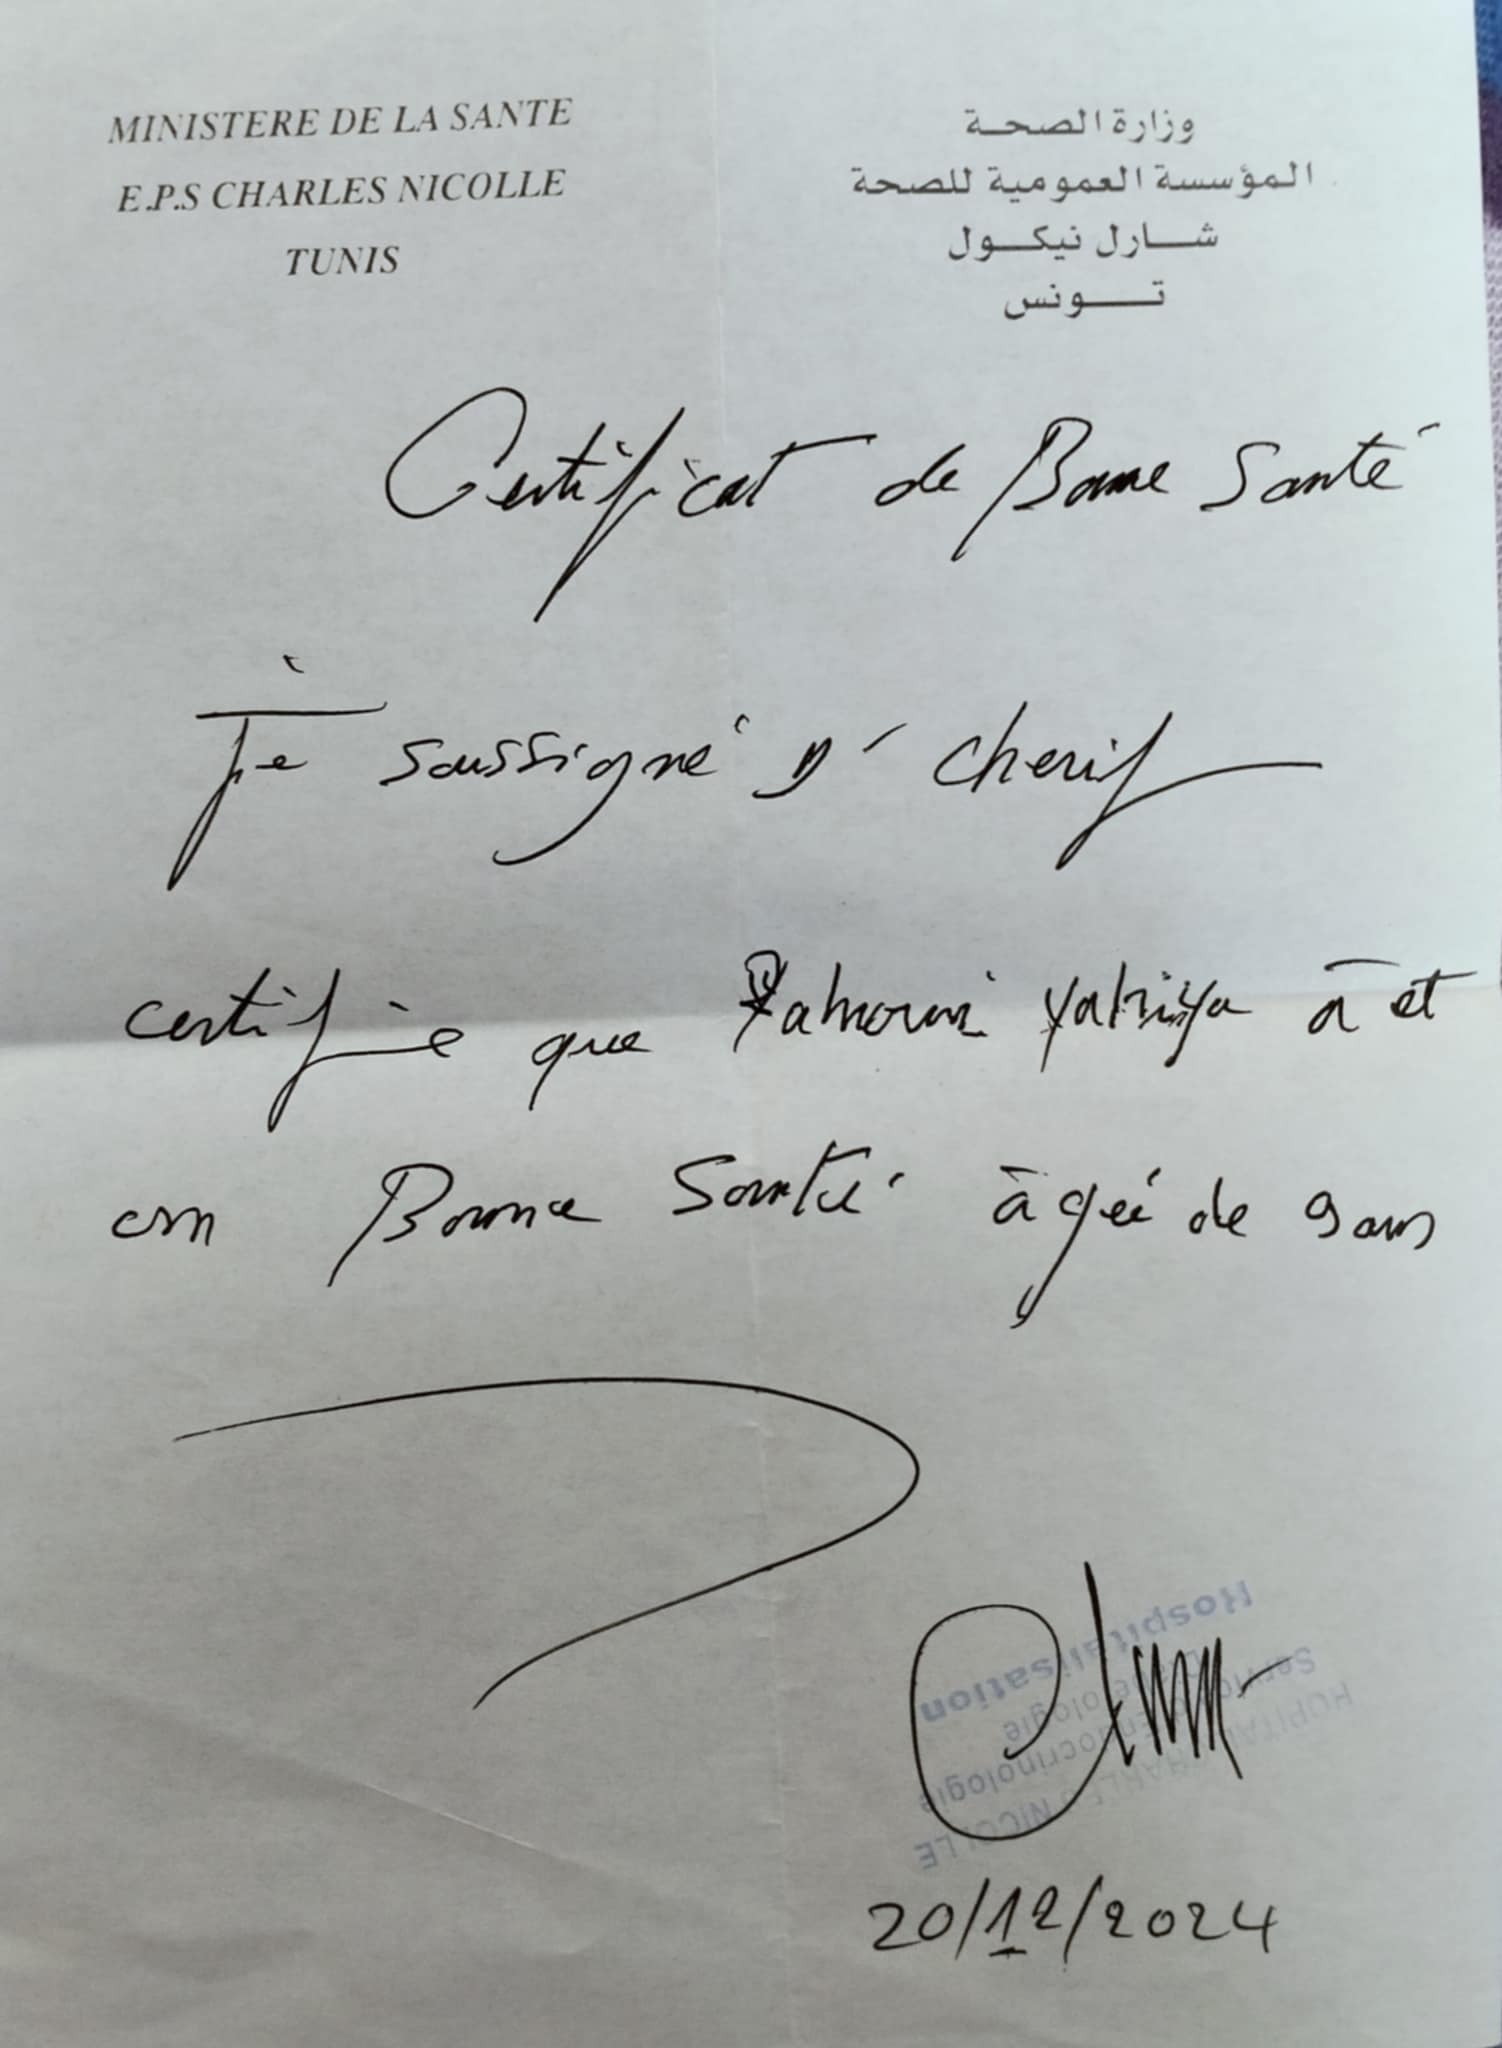 MINISTERE DE LA SANTE
E.P.S CHARLES NICOLLE
TUNIS
وزارة الصحة
المؤسسة العمومية للصحة
شارل نيكول
تونس
Certificat de Bonne Santé
Je soussigné Dr cherif
certifie que yahiya à et
en Bonne Santé àgeé de 9 ans
HOPITAL CHARLES NICOLLE
Service Endocrinologie
Hospitalisation
20/12/2024